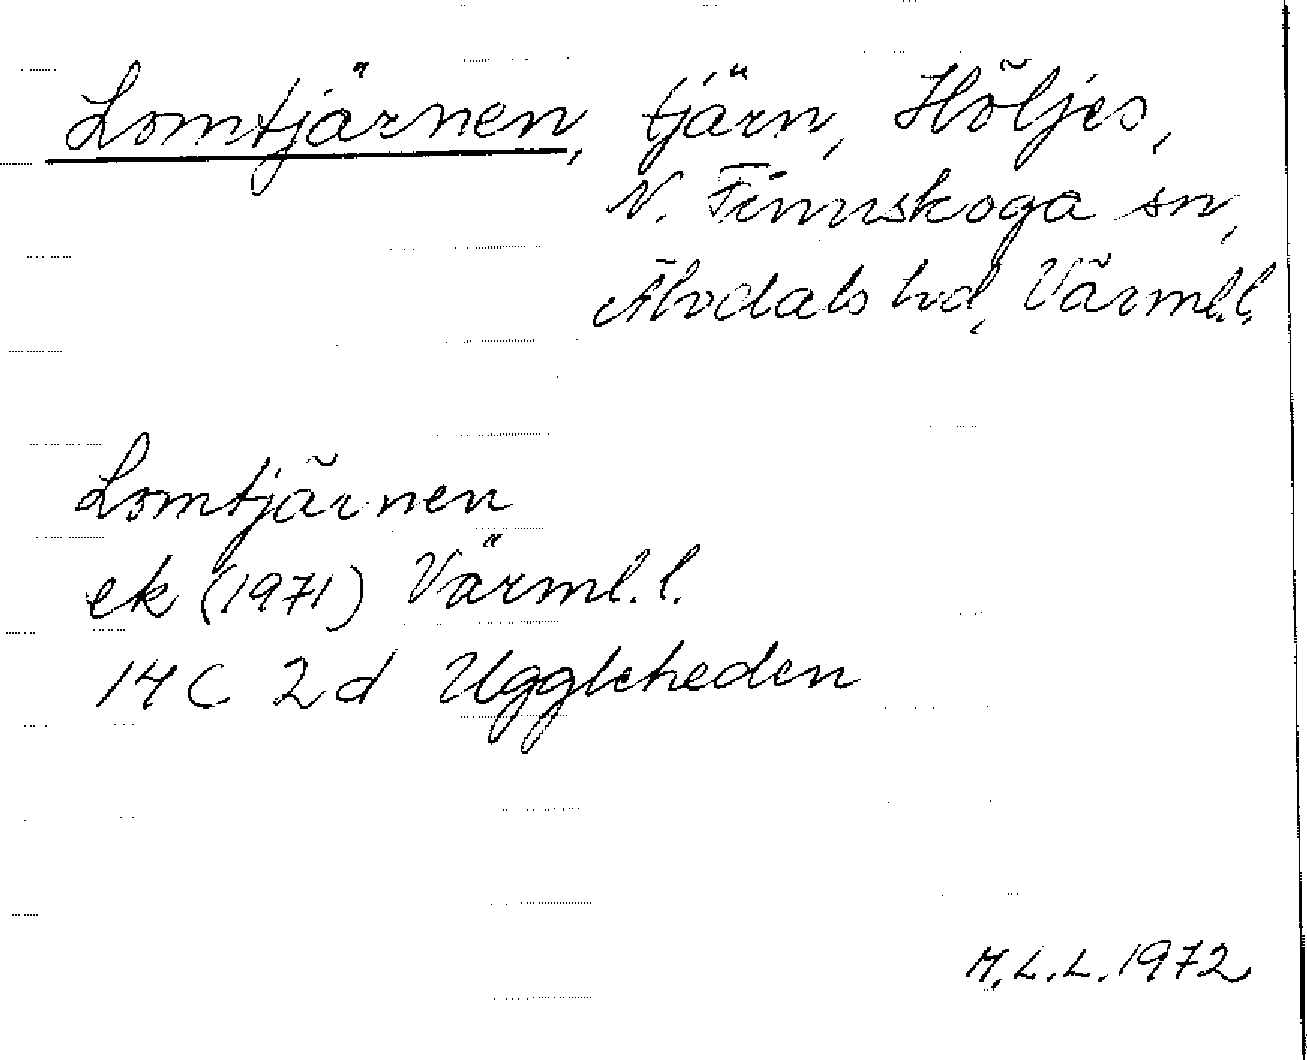 Lomtjärnen, tjärn, Höljes,
N. Finnskoga sn,
Älvdals hd, Värml.l.
Lomtjärnen
ek (1971) Värml.l.
14C 2d Uggleheden
M.L.L. 1972